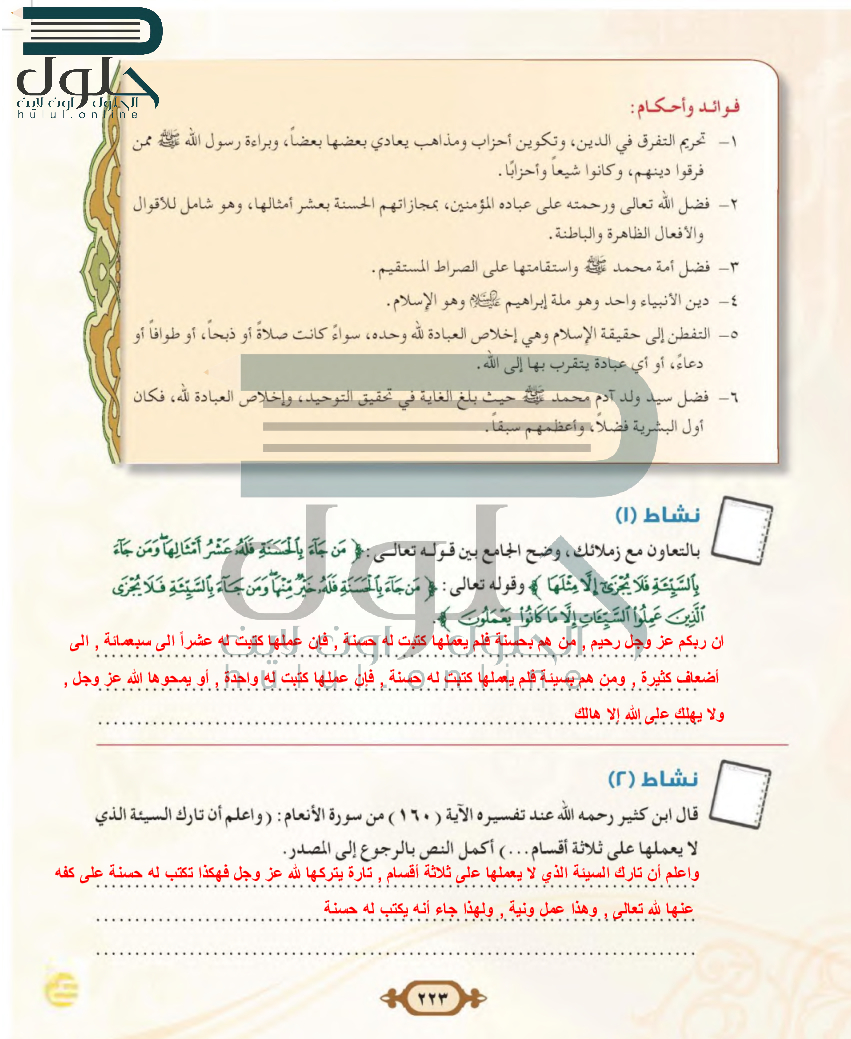 حلول
الحلول اون لاين
hulul.online
فوائد وأحكام:
١- تحريم التفرق في الدين، وتكوين أحزاب ومذاهب يعادي بعضها بعضاً، وبراءة رسول الله ﷺ ممن
فرقوا دينهم، وكانوا شيعاً وأحزابًا.
٢- فضل الله تعالى ورحمته على عباده المؤمنين، بمجازاتهم الحسنة بعشر أمثالها، وهو شامل للأقوال
والأفعال الظاهرة والباطنة.
٣- فضل أمة محمد ﷺ واستقامتها على الصراط المستقيم.
٤- دين الأنبياء واحد وهو ملة إبراهيم عليه السلام وهو الإسلام.
٥- التفطن إلى حقيقة الإسلام وهي إخلاص العبادة لله وحده، سواءً كانت صلاةً أو ذبحاً، أو طوافاً أو
دعاءً، أو أي عبادة يتقرب بها إلى الله.
٦- فضل سيد ولد آدم محمد ﷺ حيث بلغ الغاية في تحقيق التوحيد، وإخلاص العبادة لله، فكان
أول البشرية فضلاً، وأعظمهم سبقاً.
نشاط (١)
بالتعاون مع زملائك، وضح الجامع بين قوله تعالى: ﴿ مَن جَآءَ بِٱلْحَسَنَةِ فَلَهُۥ عَشْرُ أَمْثَالِهَا ۖ وَمَن جَآءَ
بِٱلسَّيِّئَةِ فَلَا يُجْزَىٰٓ إِلَّا مِثْلَهَا ﴾ وقوله تعالى: ﴿ مَن جَآءَ بِٱلْحَسَنَةِ فَلَهُۥ خَيْرٌ مِّنْهَا ۖ وَمَن جَآءَ بِٱلسَّيِّئَةِ فَلَا يُجْزَى
ٱلَّذِينَ عَمِلُوا۟ ٱلسَّيِّـَٔاتِ إِلَّا مَا كَانُوا۟ يَعْمَلُونَ ﴾.
ان ربكم عز وجل رحيم , من هم بحسنة فلم يعملها كتبت له حسنة , فإن عملها كتبت له عشراً الى سبعمائة , الى
أضعاف كثيرة , ومن هم بسيئة فلم يعملها كتبت له حسنة , فإن عملها كتبت له واحدة , أو يمحوها الله عز وجل ,
ولا يهلك على الله إلا هالك
حلول
الحلول اون لاين
hulul.online
نشاط (٢)
قال ابن كثير رحمه الله عند تفسيره الآية (١٦٠) من سورة الأنعام: (واعلم أن تارك السيئة الذي
لا يعملها على ثلاثة أقسام...) أكمل النص بالرجوع إلى المصدر.
واعلم أن تارك السيئة الذي لا يعملها على ثلاثة أقسام , تارة يتركها لله عز وجل فهكذا تكتب له حسنة على كفه
عنها لله تعالى , وهذا عمل ونية , ولهذا جاء أنه يكتب له حسنة
٢٢٣